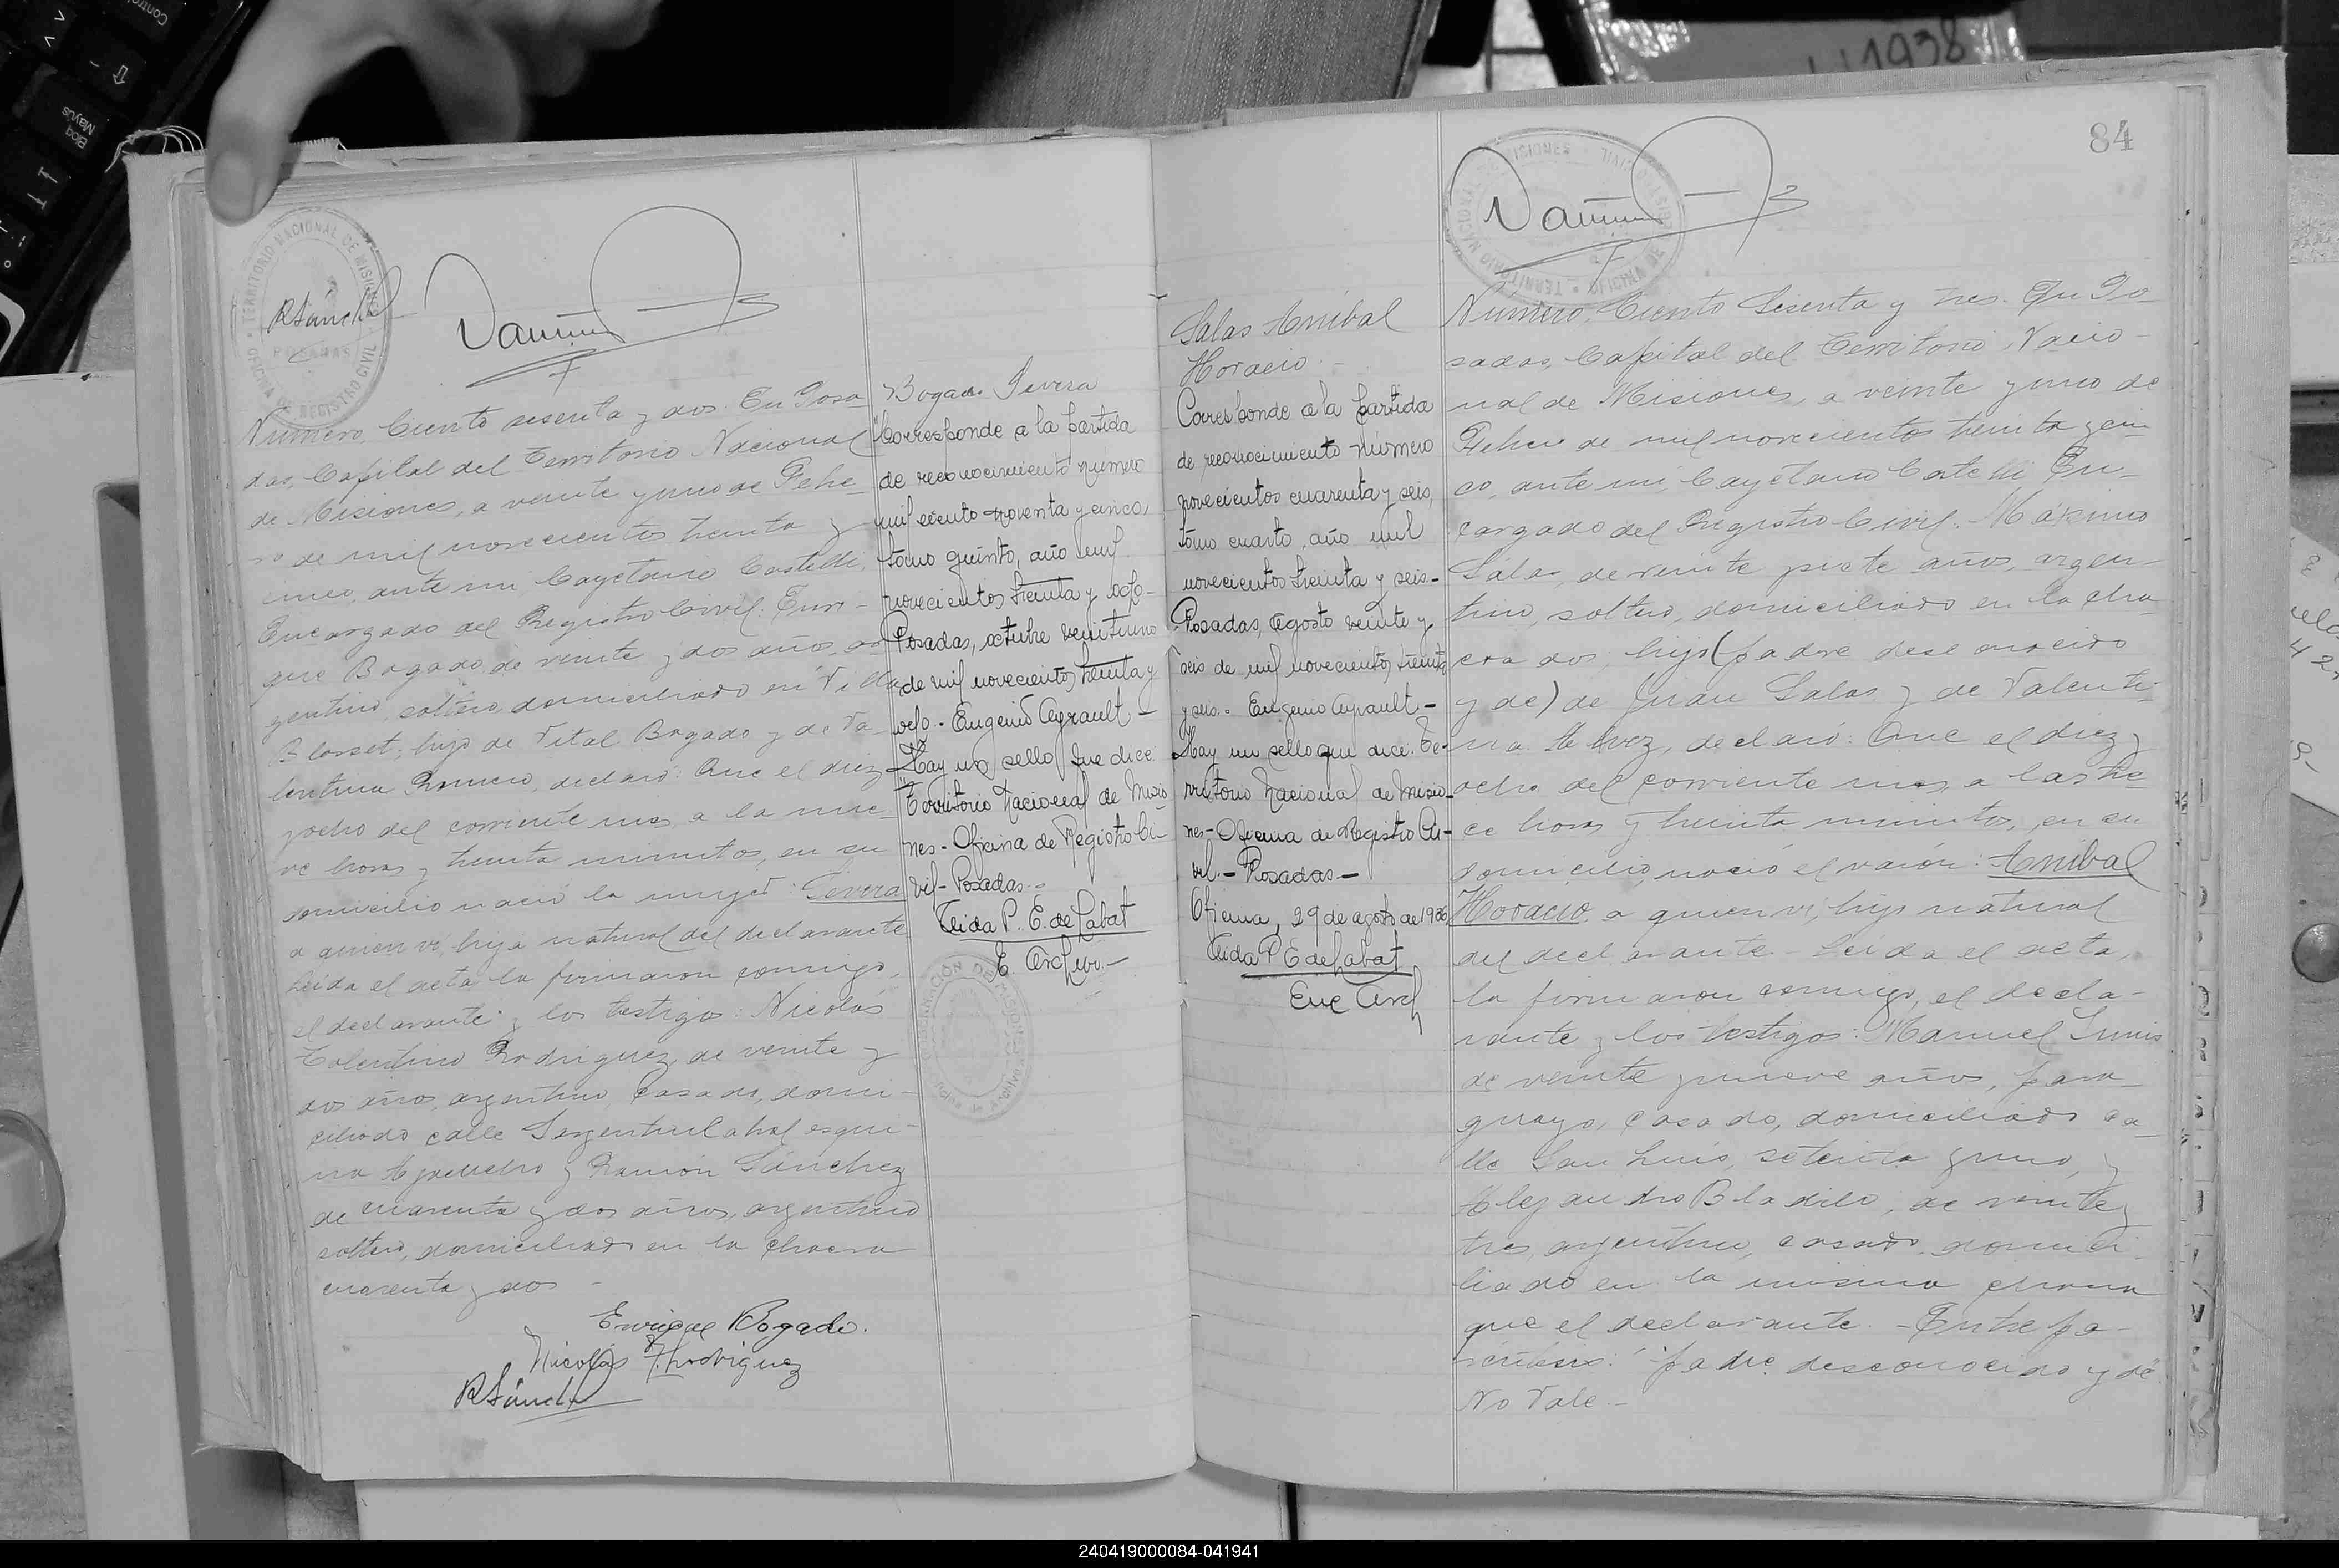 11938
84
TERRITORIO NACIONAL DE MISIONES
OFICINA DE REGISTRO CIVIL
POSADAS
RSánchez
Número Ciento sesenta y dos. En Posa
das, Capital del Territorio Nacional
de Misiones, a veinte y uno de Febre
ro de mil novecientos treinta y
cinco, ante mi, Cayetano Castelli,
Encargado del Registro Civil: Enri-
que Bogado, de veinte y dos años, ar
gentino, soltero, domiciliado en Villa
Blosset; hijo de Vital Bogado y de Va
lentina Romero, declaró: Que el diez
y ocho del corriente mes, a la nue
ve horas y treinta minutos, en su
domicilio nació la mujer: Severa
a quien vi, hija natural del declarante
Leída el acta la firmaron conmigo,
el declarante y los testigos: Nicolás
Tolentino Rodriguez, de veinte y
dos años, argentino, casado, domi-
ciliado calle Sargento Cabral esqui-
na Ayacucho y Ramón Sánchez
de cuarenta y dos años, argentino
soltero, domiciliado en la chacra
cuarenta y dos -
Enrique Bogado.
Nicolás T. Rodriguez
RSánchez
Bogado Severa
"Corresponde a la partida
de reconocimiento número
mil ciento noventa y cinco,
tomo quinto, año mil
novecientos treinta y ocho-
Posadas, octubre veintiuno
de mil novecientos treinta y
ocho.- Eugenio Ayrault -
Hay un sello que dice
"Territorio Nacional de Misio
nes - Oficina de Registro Ci-
vil - Posadas.-
Leida P. E. de Labat
E. Arch
GOBERNACIÓN DE MISIONES
Salas Anibal
Horacio -
Corresponde a la partida
de reconocimiento número
novecientos cuarenta y seis,
tomo cuarto, año mil
novecientos treinta y seis-
Posadas, agosto veinte y
seis de mil novecientos treinta
y seis.- Eugenio Ayrault -
Hay un sello que dice: Te-
rritorio Nacional de Misio-
nes - Oficina de Registro Ci-
vil. - Posadas -
Oficina, 29 de agosto de 1936
Leida P E de Labat
Enc Arch
TERRITORIO NACIONAL DE MISIONES
Número Ciento Sesenta y tres. En Po
sadas, Capital del Territorio Nacio-
nal de Misiones, a veinte y uno de
Febrero de mil novecientos treinta y cin
co, ante mi, Cayetano Castelli En-
cargado del Registro Civil. - Máximo
Salas, de veinte y siete años, argen-
tino, soltero, domiciliado en la cha
cra dos, hijo (padre desconocido
y de) de Juan Salas y de Valenti-
na Alvez, declaró: Que el diez y
ocho del corriente mes, a las tre
ce horas y treinta minutos, en su
domicilio, nació el varón: Anibal
Horacio, a quien vi, hijo natural
del declarante. Leída el acta,
la firmaron conmigo, el decla-
rante y los testigos: Manuel
de veinte y nueve años, para-
guayo, casado, domiciliado ca-
lle San Luis, setenta y uno, y
Alejandro Bladilo, de veinte y
tres, argentino, casado, domici-
liado en la misma chacra
que el declarante. - Entre pa-
réntesis: "padre desconocido y de"
No Vale -
240419000084-041941